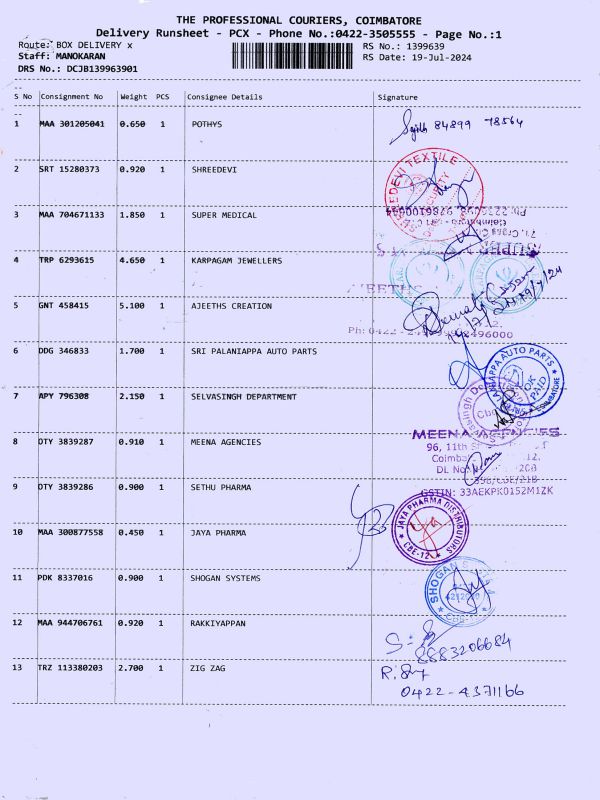 THE PROFESSIONAL COURIERS, COIMBATORE
Delivery Runsheet - PCX - Phone No.:0422-3505555 - Page No.:1
Route: BOX DELIVERY x RS No.: 1399639
Staff: MANOKARAN RS Date: 19-Jul-2024
DRS No.: DCJB139963901
S No Consignment No Weight PCS Consignee Details Signature
1 MAA 301205041 0.650 1 POTHYS 84899 78564
2 SRT 15280373 0.920 1 SHREEDEVI
SREEDEVI TEXTILE
3 MAA 704671133 1.850 1 SUPER MEDICAL
4 TRP 6293615 4.650 1 KARPAGAM JEWELLERS
5 GNT 458415 5.100 1 AJEETHS CREATION
Ph: 0422 -
6 DDG 346833 1.700 1 SRI PALANIAPPA AUTO PARTS
PALANIAPPA AUTO PARTS
PAID
COIMBATORE
7 APY 796308 2.150 1 SELVASINGH DEPARTMENT
8 OTY 3839287 0.910 1 MEENA AGENCIES
MEENA AGENCIES
96, 11th
DL No
9 OTY 3839286 0.900 1 SETHU PHARMA
GSTIN: 33AEKPK0152M1ZK
10 MAA 300877558 0.450 1 JAYA PHARMA
JAYA PHARMA DISTRIBUTORS
CBE-12
11 PDK 8337016 0.900 1 SHOGAN SYSTEMS
SHOGAN
12 MAA 944706761 0.920 1 RAKKIYAPPAN
8883206684
13 TRZ 113380203 2.700 1 ZIG ZAG
0422-4371166